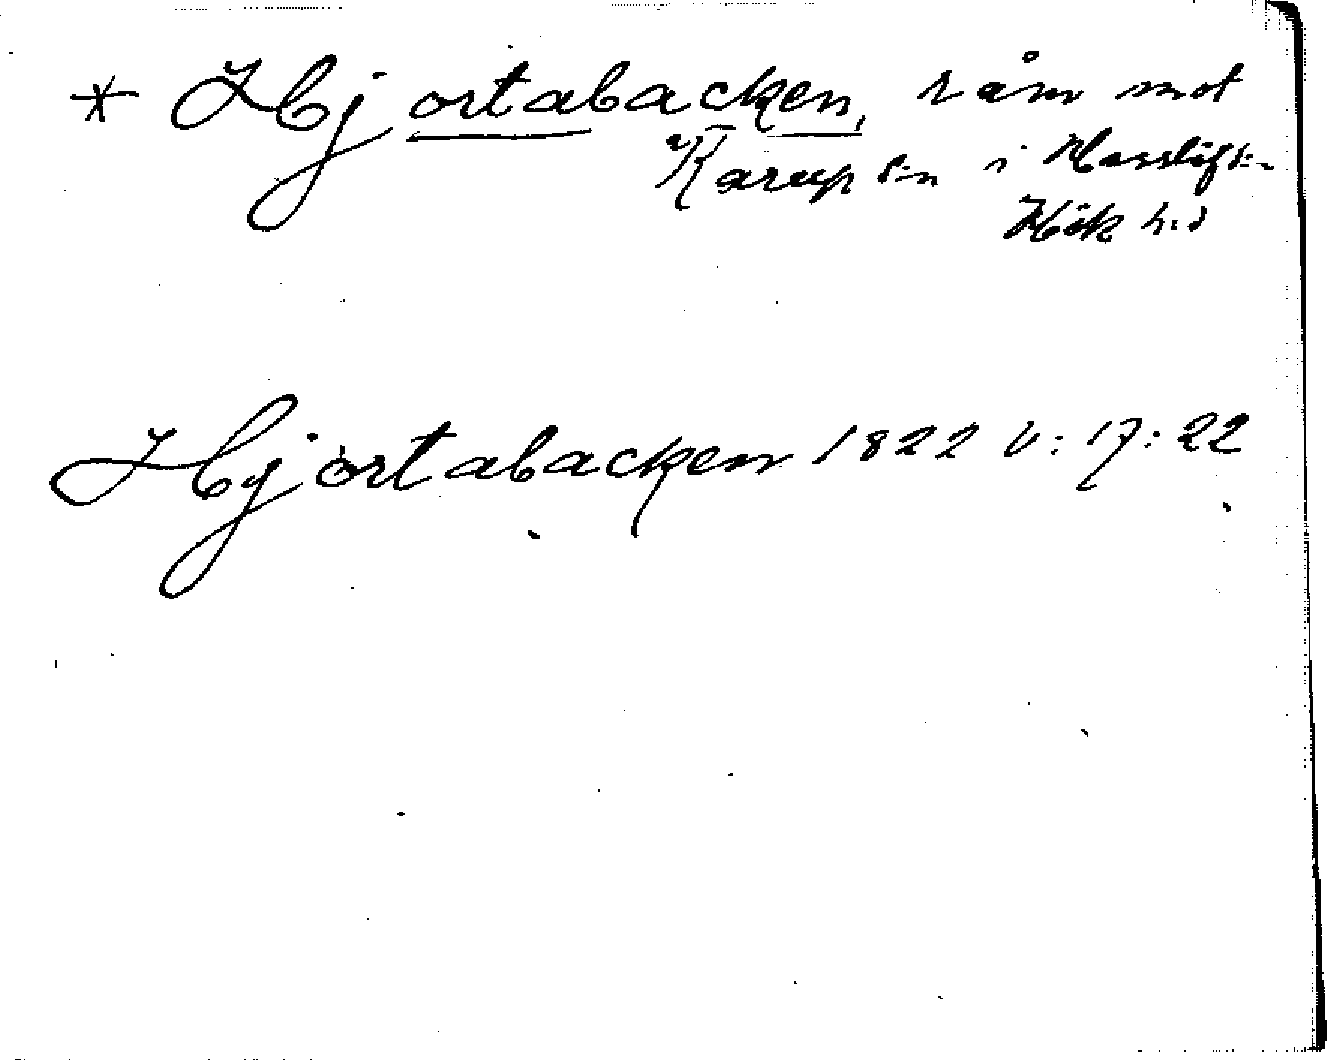 * Hjortabacken, råm mot
Karup s:n i Hasslöfs:n
Hök h:d
Hjortabacken 1822 b: 17: 22